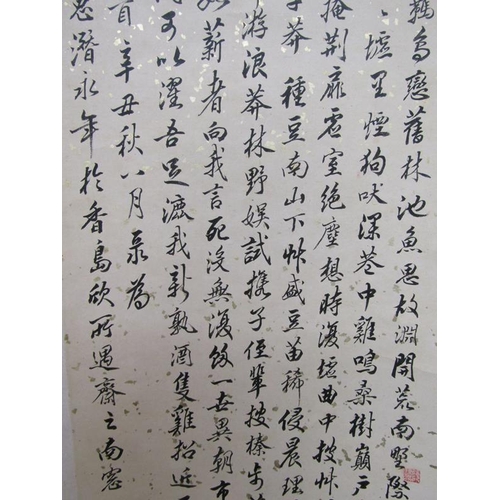 羈鳥戀舊林池魚思故淵開荒南野際
墟里煙狗吠深巷中雞鳴桑樹巔户
掩荆扉虛室絶塵想時復墟曲中披艸
莽種豆南山下艸盛豆苗稀侵晨理
游浪莽林野娱試攜子侄輩披榛步
薪者向我言死没無復餘一世異朝市
可以濯吾足漉我新熟酒隻雞招近
首辛丑秋八月录為
潛永年於香島欣所遇齋之南窓